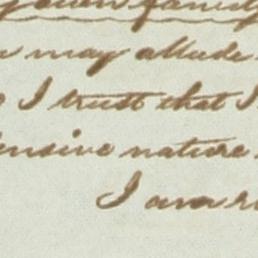 own family
may allude
I trust that I
ensive nature
I am